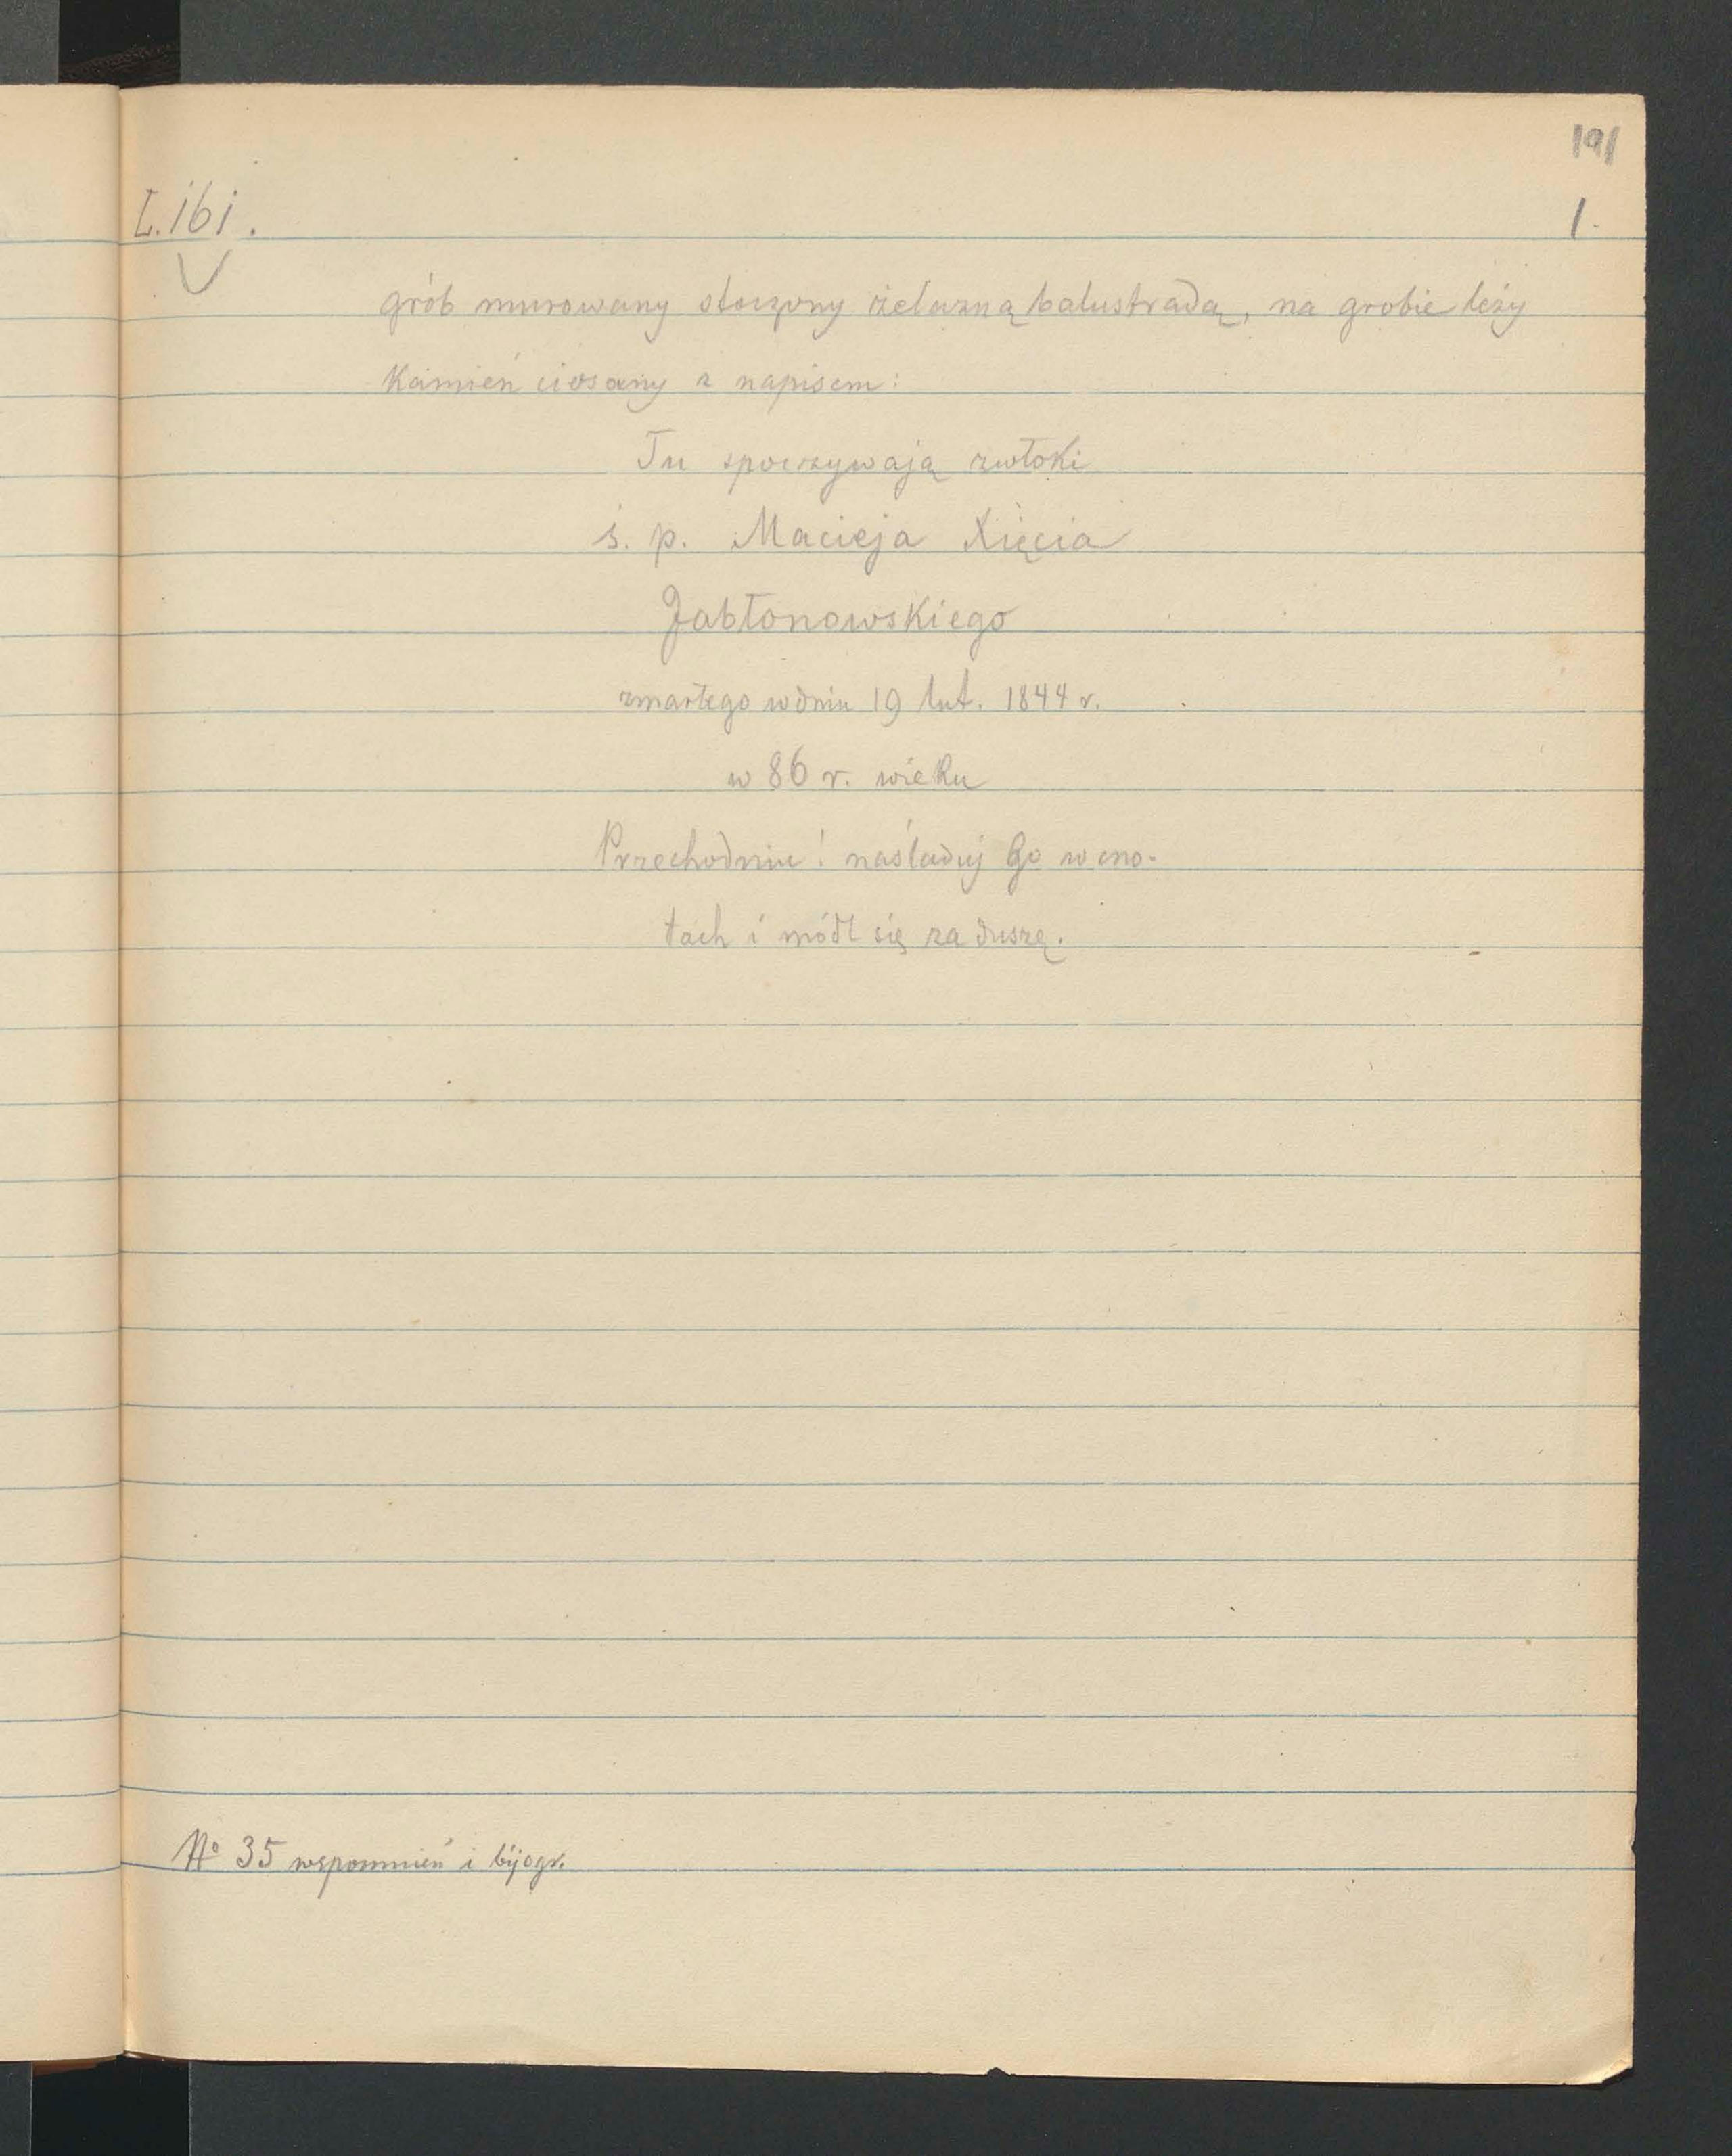 191
L. ibi. 1.
grób murowany otoczony żelazną balustradą, na grobie leży
Kamień ciosany z napisem:
Tu spoczywają zwłoki
ś. p. Macieja Xięcia
Jabłonowskiego
zmarłego w dniu 19 lut. 1844 r.
w 86 r. wieku
Przechodniu! naśladuj Go w cno-
tach i módl się za duszę.
No 35 wspomnień i bijogr.